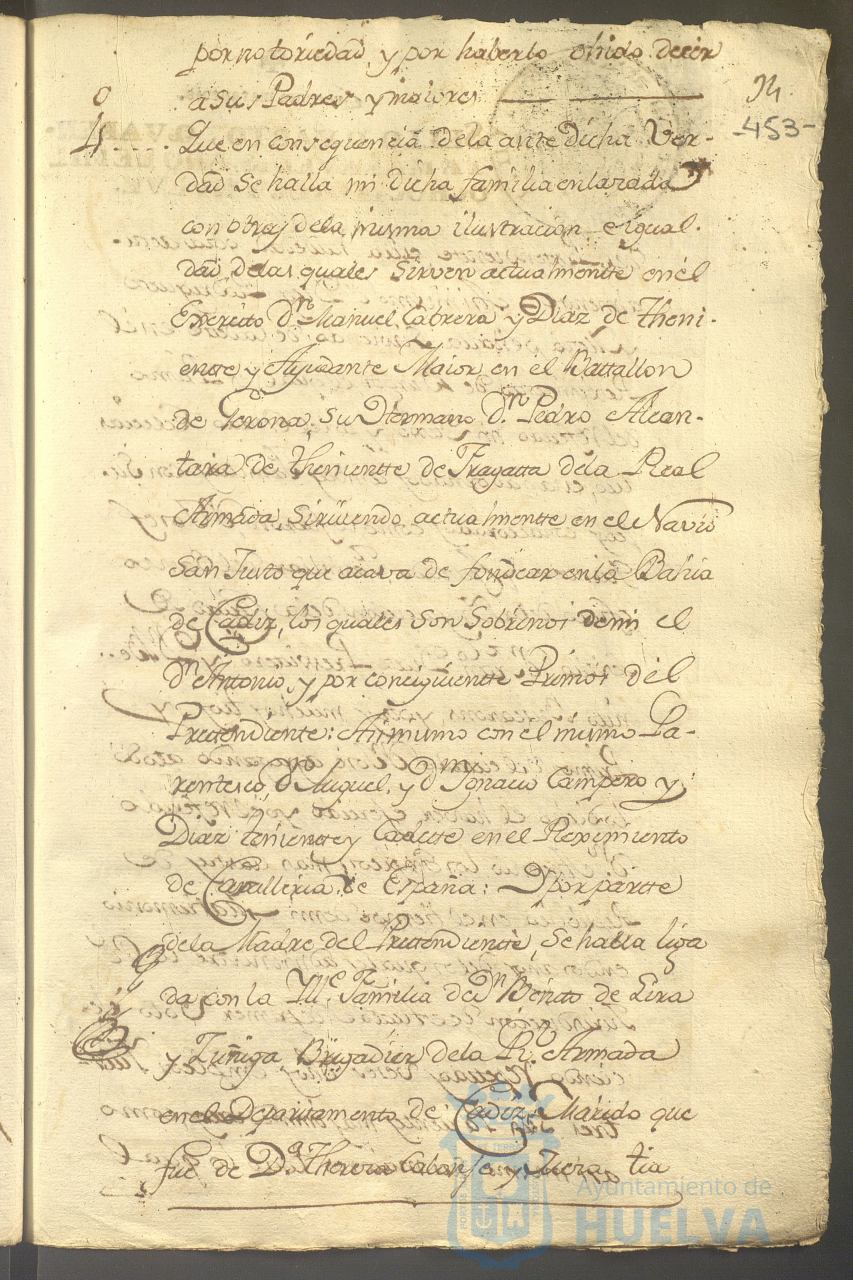 por notoriedad, y por haberlo ohido decir
a sus Padres y maiores
14
-453-
4º.... Que en consequencia de la ante dicha Ver-
dad se halla mi dicha familia enlazada
con otras de la misma ilustracion e igual-
dad, de las quales sirven actualmentte en el
Exercito Dn. Manuel Cabrera y Diaz de Theni-
entte y Ayudante Maior en el Battallon
de Gerona, su Hermano Dn. Pedro Alcan-
tara de Thenientte de Fragatta de la Real
Armada, sirviendo actualmentte en el Navio
San Justo que acava de fondear en la Bahia
de Cadiz, los quales son sobrinos de mi el
Dn. Antonio, y por conciguientte Primos del
Pretendiente: Asimismo con el mismo Pa-
rentesco, Dn. Miguel, y Dn. Ygnacio Campero y
Diaz tenientte y Cadette en el Reximiento
de Cavalleria de España: Y por partte
de la Madre del Pretendientte, se halla liga
da con la Ylle. Familia de Dn. Benito de Lira
y Zuñiga Brigadier de la Rl. Armada
en el Departamento de Cadiz, Marido que
fue de Da. Theresa Cabanja y Juera, tia
Ayuntamiento de
HUELVA